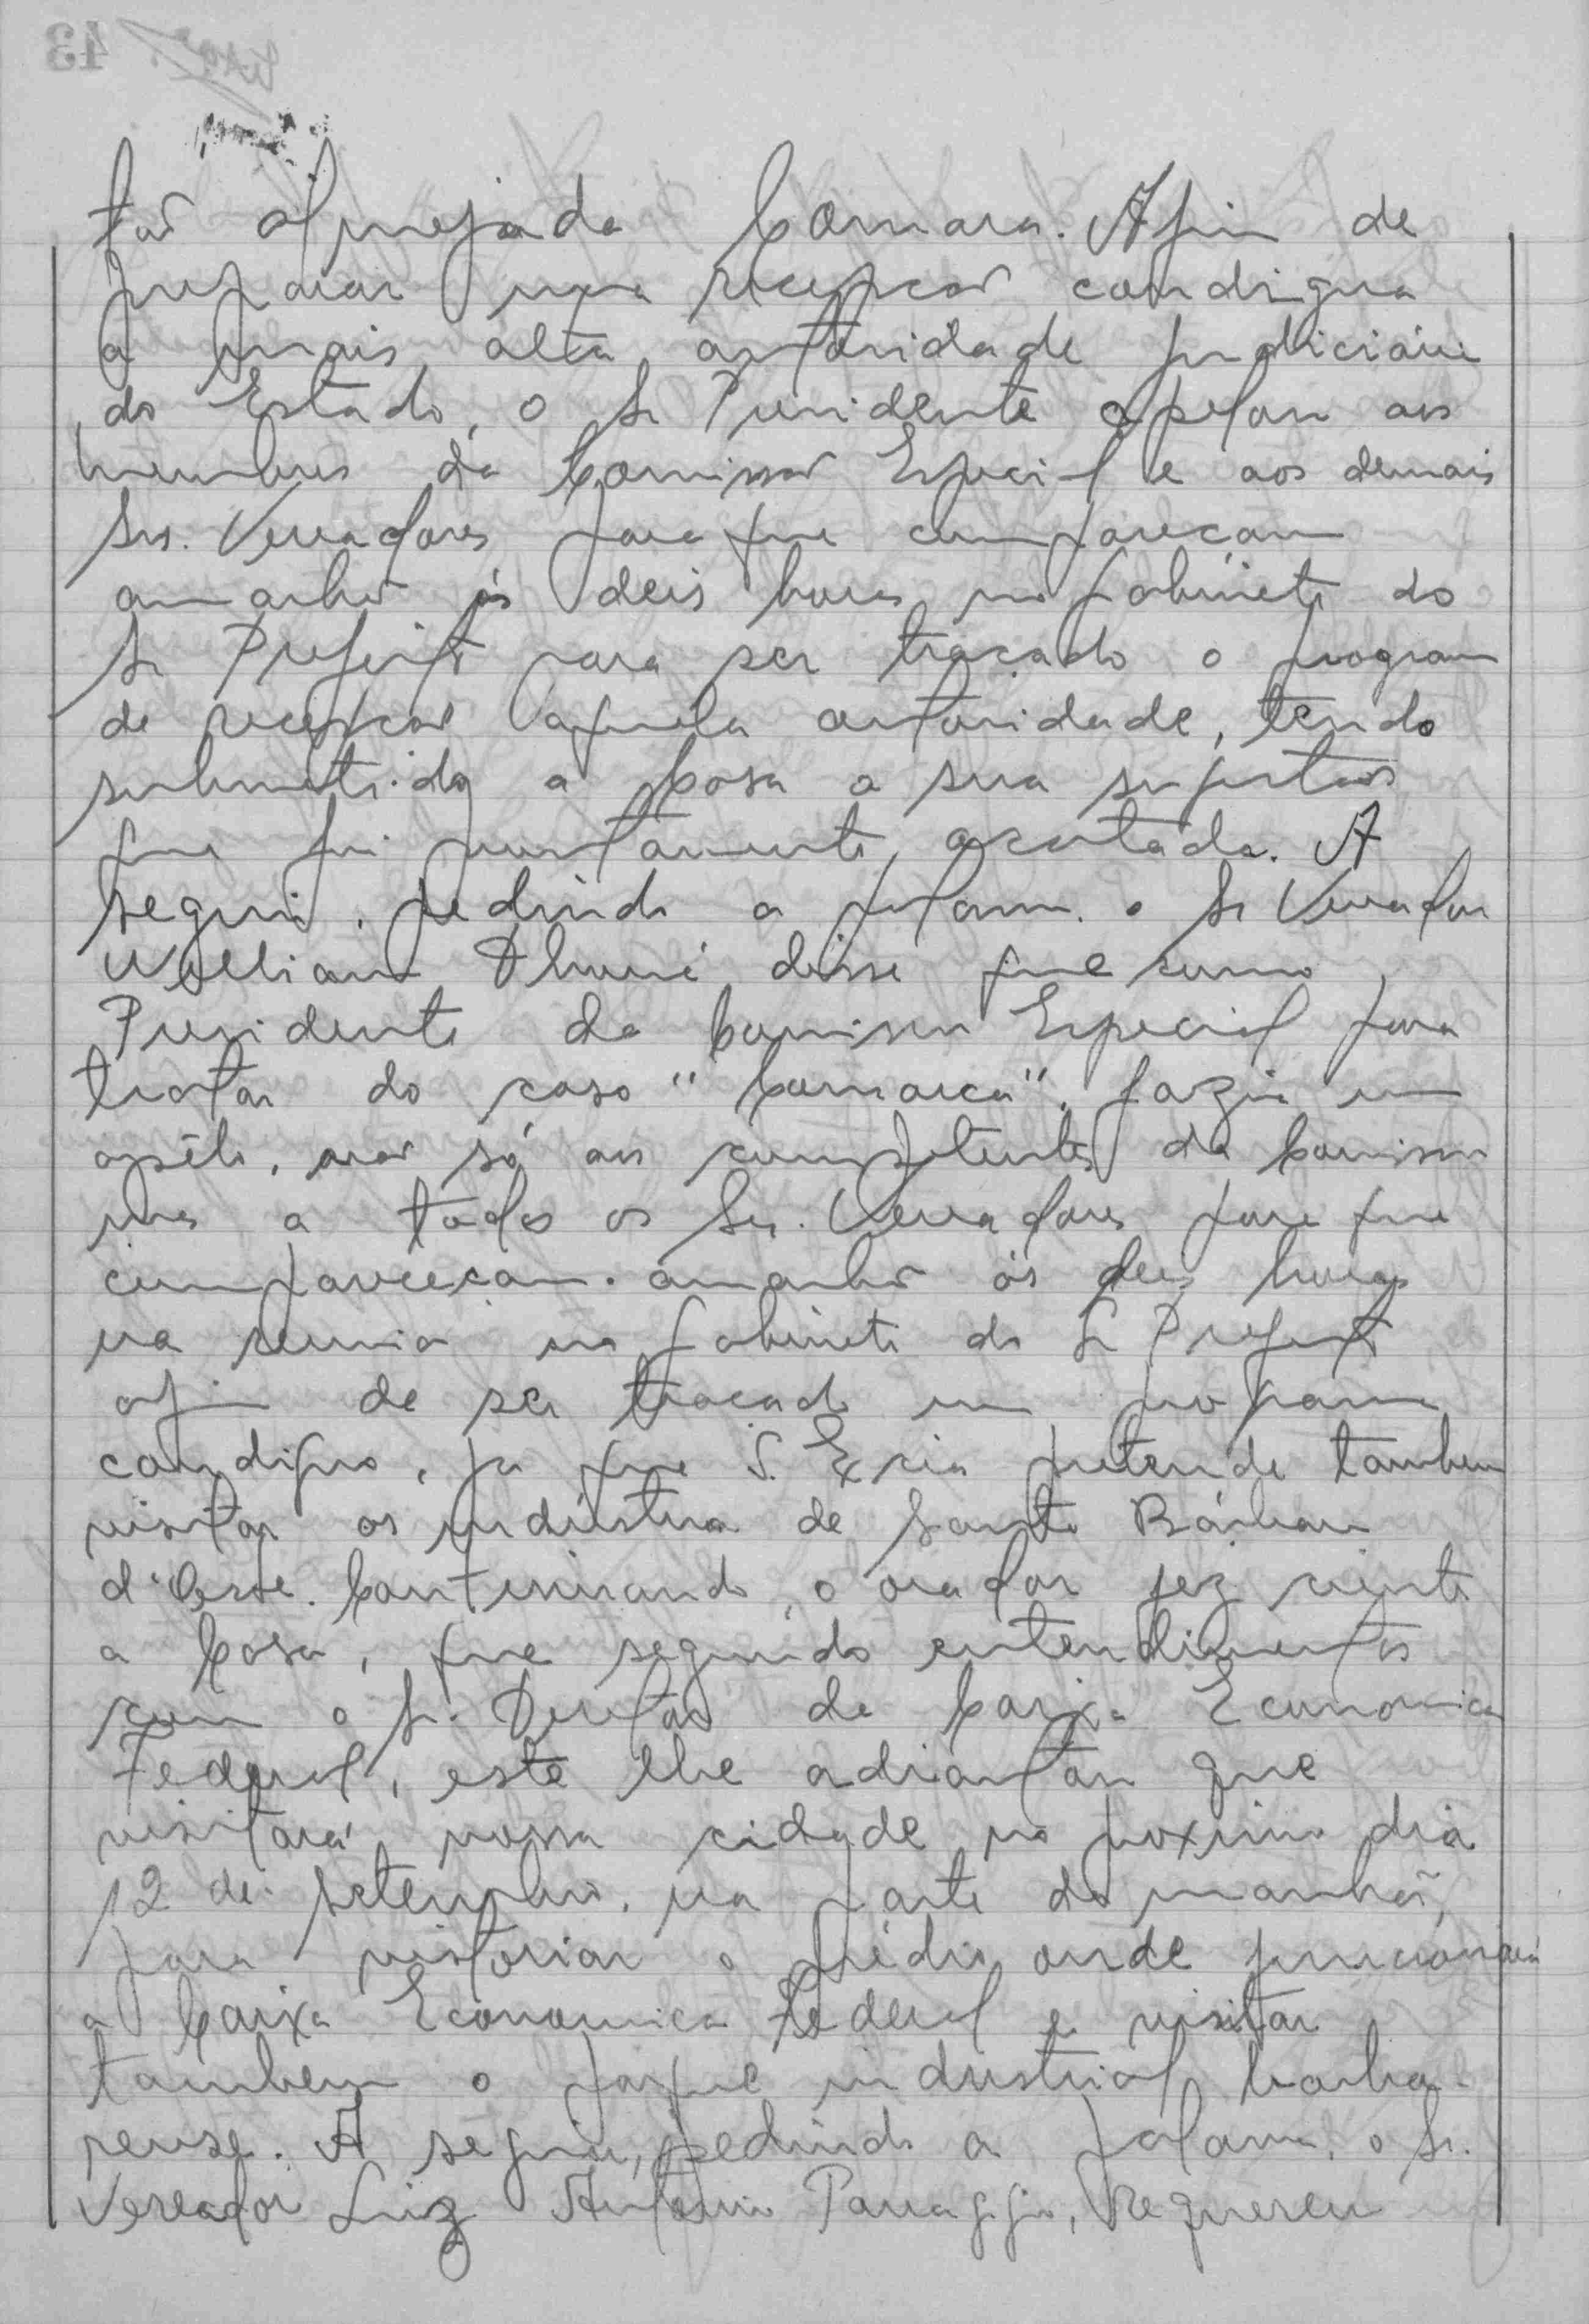 tão almejada Comarca. Afim de
preparar uma recepção condigna
a mais alta autoridade judiciária
do Estado, o Sr Presidente apelou aos
membros da Comissão Especial e aos demais
Srs. Vereadores para que compareçam
amanhã ás deis horas no gabinete do
Sr Prefeito para ser traçado o program
de recepção aquela autoridade, tendo
submetido a Casa a sua sugestão
que foi prontamente acatada. A
seguir, pedindo a palavra o Sr Vereador
Wollian disse que como
Presidente da Comissão Especial para
tratar do caso "Comarca", fazia um
apêlo, não só aos competentes da Comissão
mas a todos os Srs. Vereadores para que
compareçam amanhã ás deis horas
na reunião no gabinete do Sr Prefeito
afim de ser traçado um programa
condigno, ja que S. Excia pretende tambem
visitar as indústria de Santa Bárbara
d'Oeste. Continuando, o orador fez ciente
a Casa, que segundo entendimentos
com o Sr. Diretor da Caixa Economica
Federal, este lhe adiantou que
visitará nossa cidade no proximo dia
12 de setembro, na parte da manhã,
para vistoriar o prédio onde funcionará
a Caixa Economica Federal e visitar
tambem o parque industrial barba-
rense. A seguir, pedindo a palavra, o Sr.
Vereador Luiz Antonio Panaggio, requereu